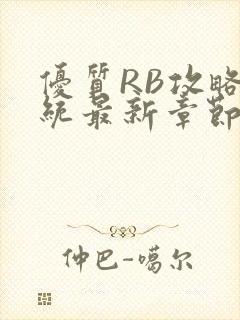 優質RB攻略
統最新章節
仲巴-噶尔